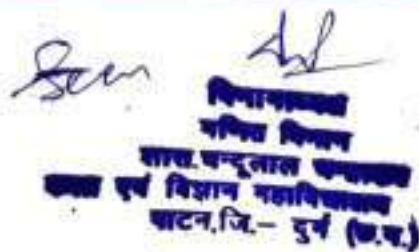 विभागाध्यक्ष
गणित विभाग
शास. चन्दूलाल चन्द्राकर
कला एवं विज्ञान महाविद्यालय
पाटन, जि.– दुर्ग (छ.ग.)